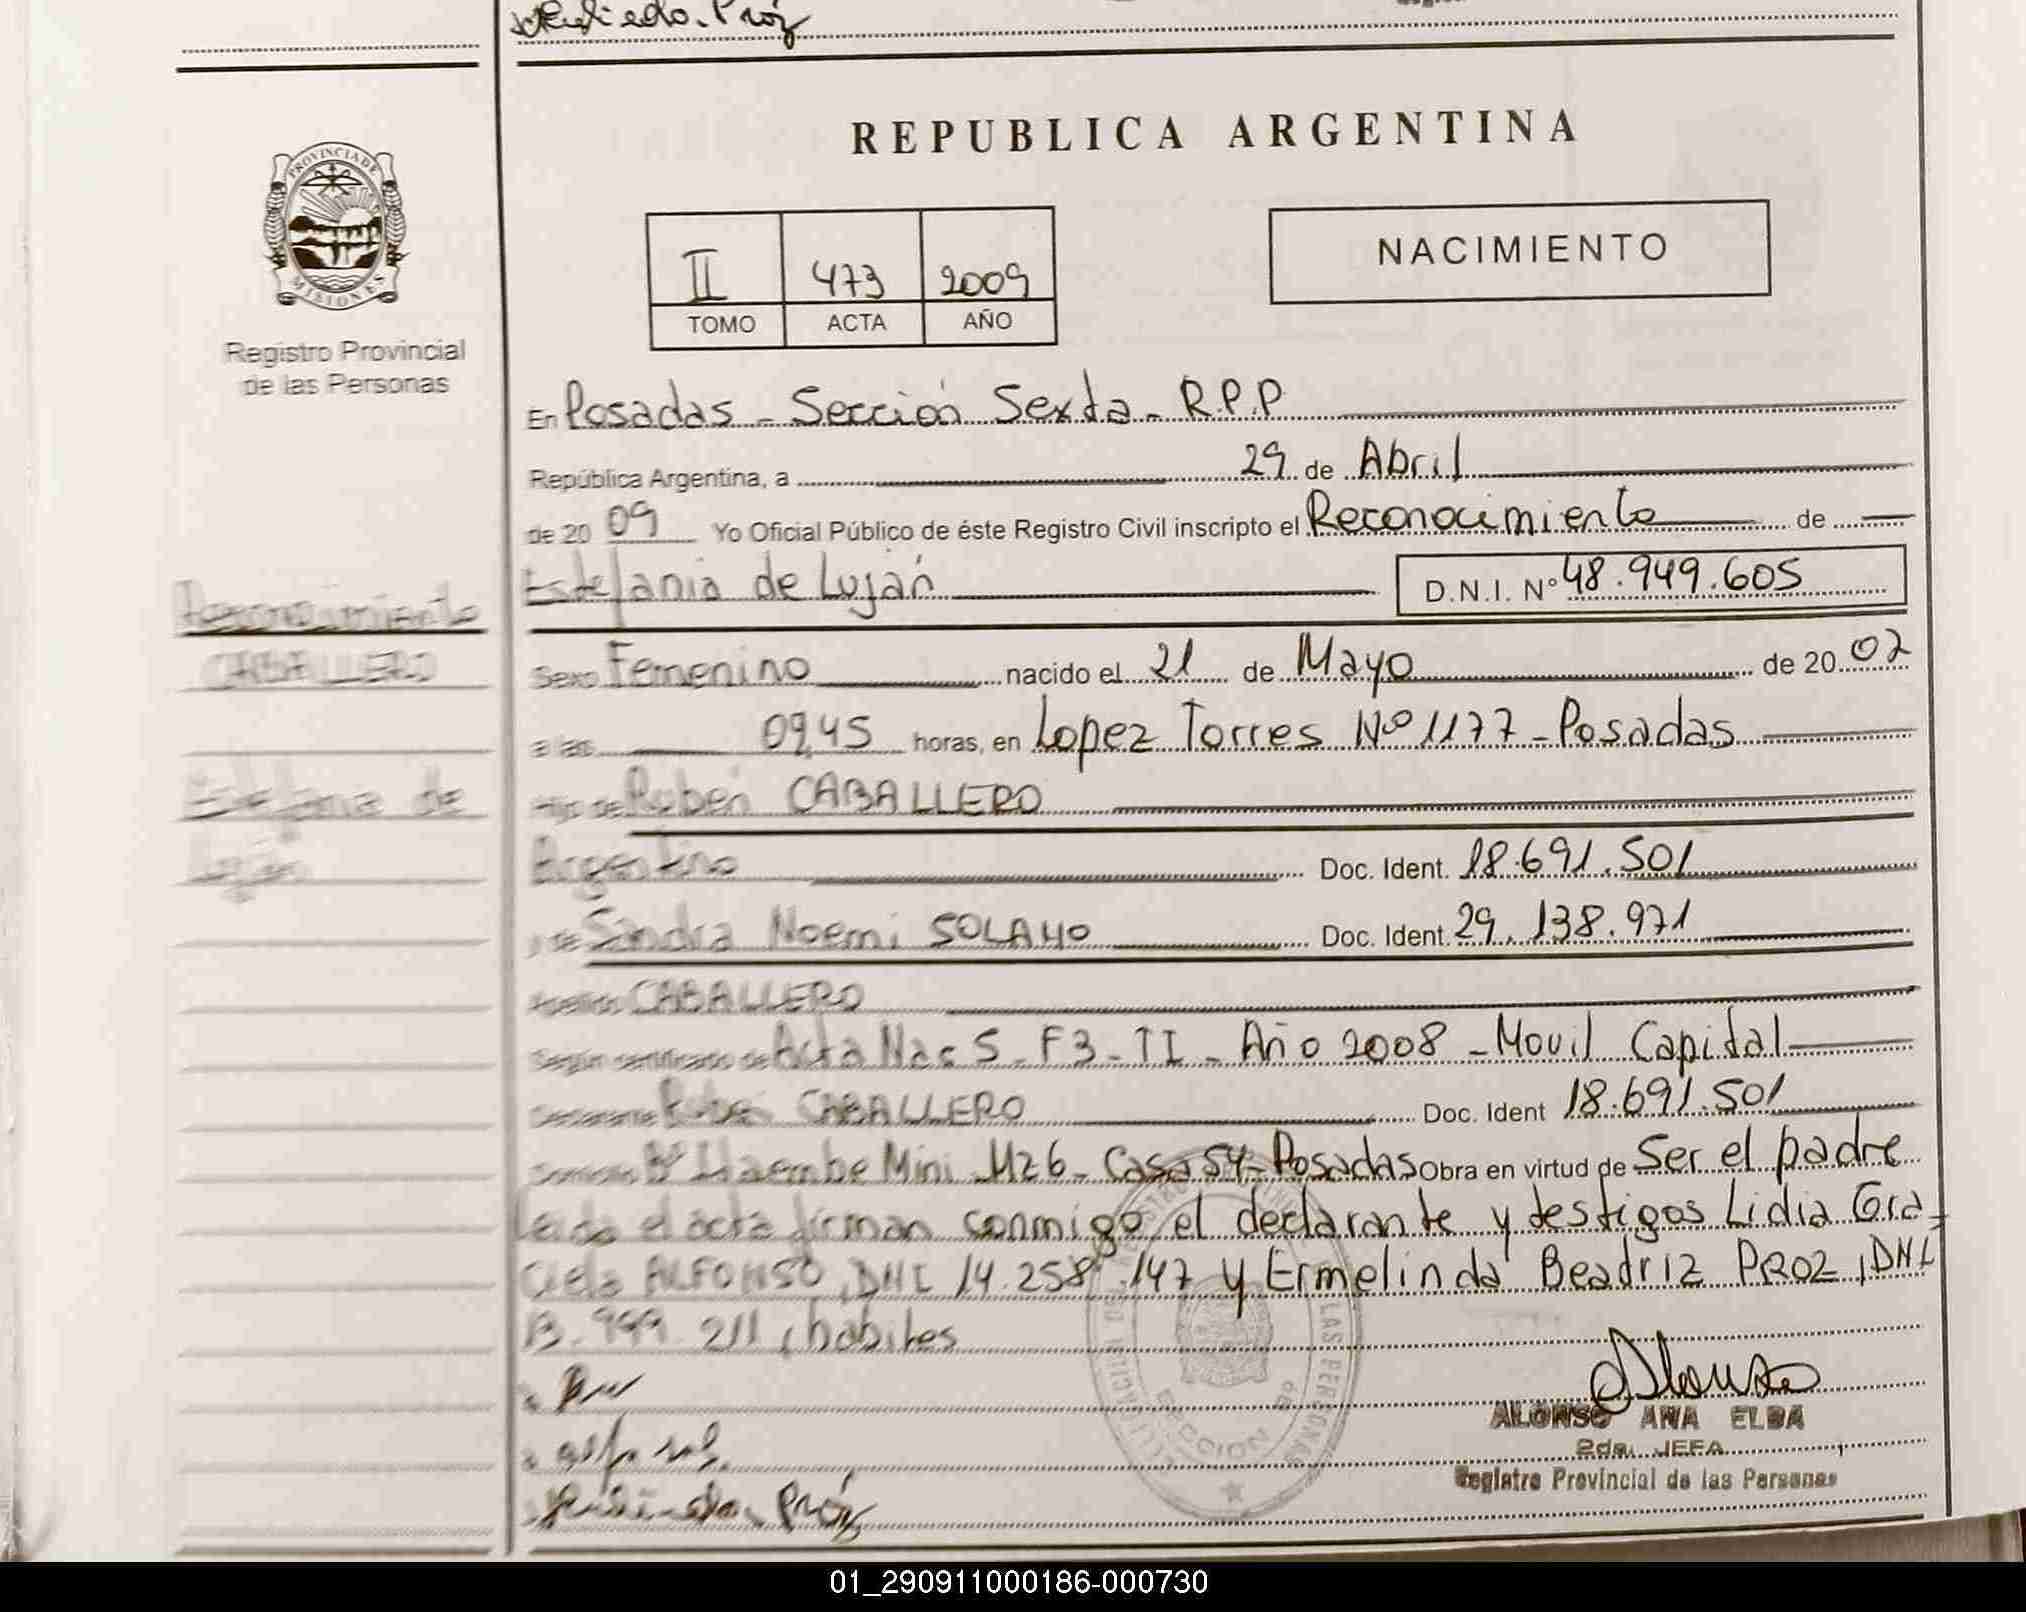 PROVINCIA DE
MISIONES
Registro Provincial
de las Personas
REPUBLICA ARGENTINA
II 473 2009
TOMO ACTA AÑO
NACIMIENTO
En Posadas - Sección Sexta - R.P.P
República Argentina, a 29 de Abril
de 2009 Yo Oficial Público de éste Registro Civil inscripto el Reconocimiento de
Estefania de Luján D.N.I. Nº 48.949.605
Reconocimiento
CABALLERO
Estefania de
Luján
Sexo Femenino nacido el 21 de Mayo de 2002
a las 09,45 horas, en Lopez Torres Nº 1177 - Posadas
Hijo de Rubén CABALLERO
Argentino Doc. Ident. 18.691.501
y de Sandra Noemi SOLANO Doc. Ident. 29.138.971
Apellido CABALLERO
Según certificado de Acta Nac 5 - F3 - TI - Año 2008 - Movil Capital
Declarante Ruben CABALLERO Doc. Ident 18.691.501
Domicilio Bº Itaembe Mini Mz6 - Casa 54 - Posadas Obra en virtud de Ser el padre
Leido el acta firman conmigo el declarante y testigos Lidia Gra-
ciela ALFONSO, DNI 14.258.147 y Ermelinda Beatriz PROZ, DNI
13.999.211, habiles
ALONSO ANA ELBA
2da. JEFA
Registro Provincial de las Personas
01_290911000186-000730